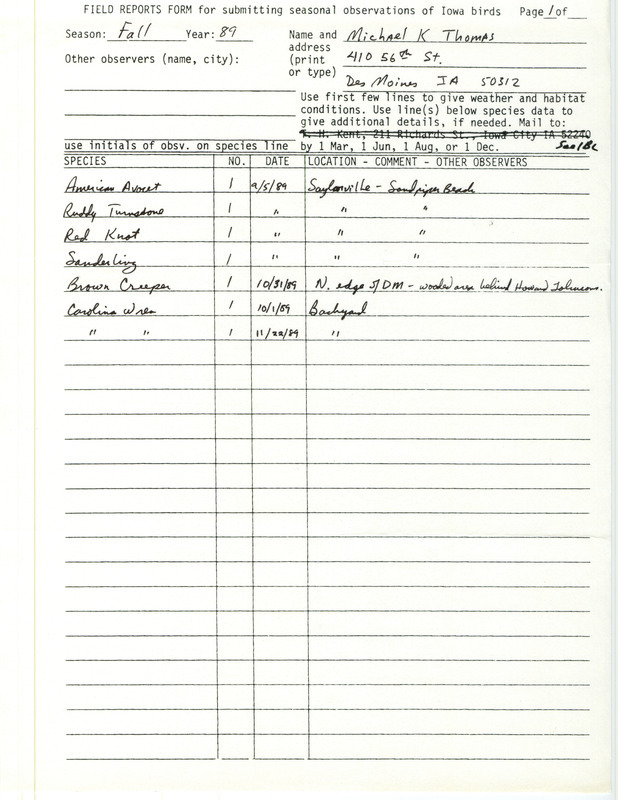 FIELD REPORTS FORM for submitting seasonal observations of Iowa birds Page 1 of
Season: Fall Year: 89 Name and Michael K Thomas
address
Other observers (name, city): (print 410 56th St.
or type) Des Moines IA 50312
Use first few lines to give weather and habitat
conditions. Use line(s) below species data to
give additional details, if needed. Mail to:
T. H. Kent, 211 Richards St., Iowa City IA 52240
use initials of obsv. on species line by 1 Mar, 1 Jun, 1 Aug, or 1 Dec.
SPECIES NO. DATE LOCATION - COMMENT - OTHER OBSERVERS
American Avocet 1 9/5/89 Saylorville - Sandpiper Beach
Ruddy Turnstone 1 " " "
Red Knot 1 " " "
Sanderling 1 " " "
Brown Creeper 1 10/31/89 N. edge of DM - wooded area behind Howard Johnsons.
Carolina Wren 1 10/1/89 Backyard
" " 1 11/22/89 "